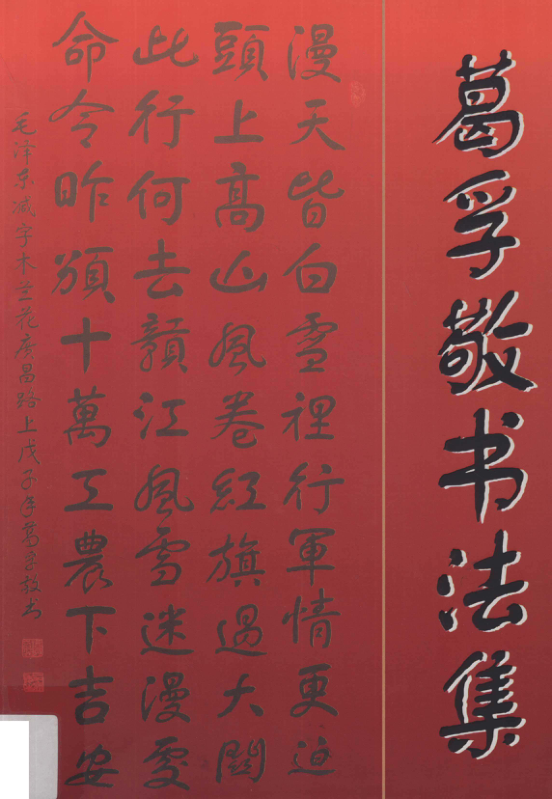 葛孚敬书法集
漫天皆白雪裡行軍情更迫
頭上高山風卷紅旗過大關
此行何去贛江風雪迷漫處
命令昨頒十萬工農下吉安
毛泽东减字木兰花廣昌路上戊子年葛孚敬书